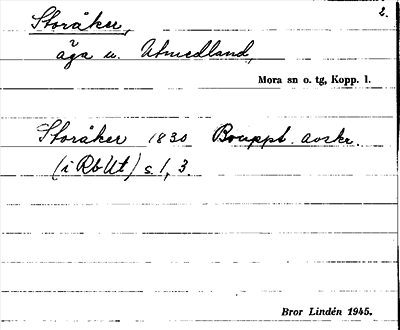 Storåker, 2.
äga u. Utmedland,
Mora sn o. tg, Kopp. l.
Storåker 1830 Bouppt. avskr.
(i RbUt) s. 1, 3.
Bror Lindén 1945.